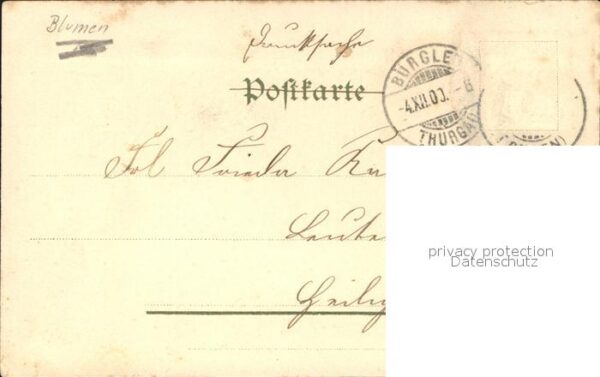 Blumen
Drucksache
Postkarte
BÜRGLE
-4.XII.00. -8
THURGAU
Frl Frieda
Heilig
privacy protection
Datenschutz